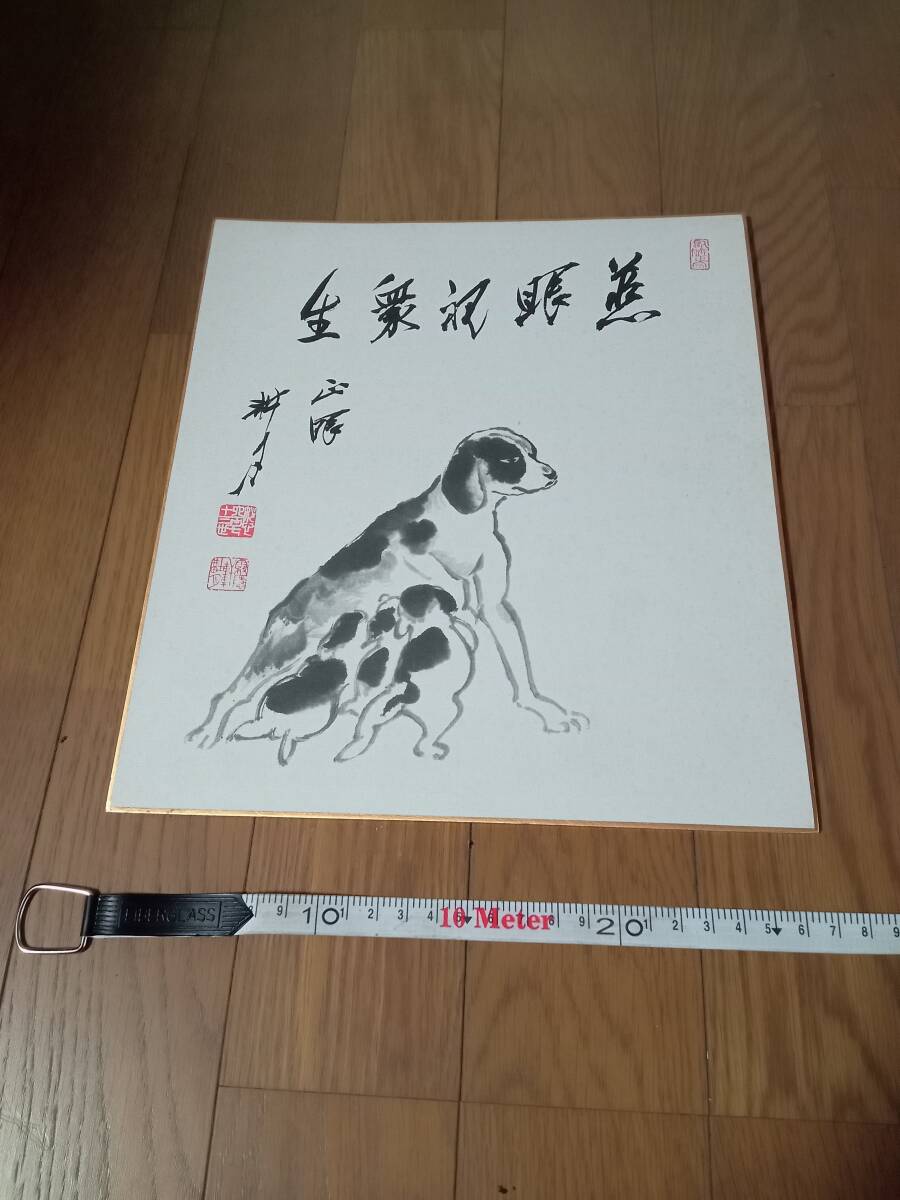 慈眼視衆生
正眼
耕月
FIBERGLASS
9 10 1 2 3 4 5 6 7 8 9 20 1 2 3 4 5 6 7 8 9
10 Meter